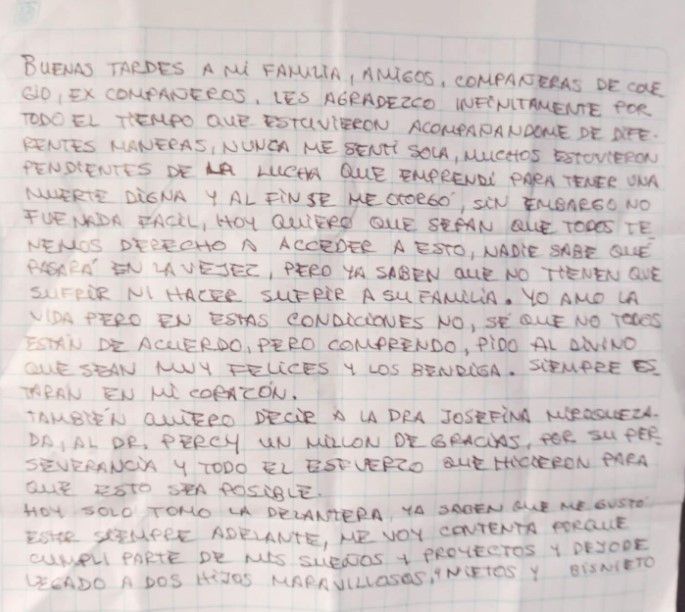 BUENAS TARDES A MI FAMILIA, AMIGOS, COMPAÑERAS DE COLE
GIO, EX COMPAÑEROS, LES AGRADEZCO INFINITAMENTE POR
TODO EL TIEMPO QUE ESTUVIERON ACOMPAÑANDOME DE DIFE-
RENTES MANERAS, NUNCA ME SENTÍ SOLA, MUCHOS ESTUVIERON
PENDIENTES DE LA LUCHA QUE EMPRENDÍ PARA TENER UNA
MUERTE DIGNA Y AL FIN SE ME OTORGÓ, SIN EMBARGO NO
FUE NADA FACIL, HOY QUIERO QUE SEPAN QUE TODOS TE
NEMOS DERECHO A ACCEDER A ESTO, NADIE SABE QUÉ
PASARÁ EN LA VEJEZ, PERO YA SABEN QUE NO TIENEN QUE
SUFRIR NI HACER SUFRIR A SU FAMILIA. YO AMO LA
VIDA PERO EN ESTAS CONDICIONES NO, SÉ QUE NO TODOS
ESTÁN DE ACUERDO, PERO COMPRENDO, PIDO AL DIVINO
QUE SEAN MUY FELICES Y LOS BENDIGA. SIEMPRE ES
TARAN EN MI CORAZÓN.
TAMBIÉN QUIERO DECIR A LA DRA JOSEFINA MIROQUEZA-
DA, AL DR. PERCY UN MILLON DE GRACIAS, POR SU PER
SEVERANCIA Y TODO EL ESFUERZO QUE HICIERON PARA
QUE ESTO SEA POSIBLE.
HOY SOLO TOMO LA DELANTERA, YA SABEN QUE ME GUSTÓ
ESTAR SIEMPRE ADELANTE, ME VOY CONTENTA PORQUE
CUMPLI PARTE DE MIS SUEÑOS Y PROYECTOS Y DEJO DE
LEGADO A DOS HIJOS MARAVILLOSOS, Y NIETOS Y BISNIETO